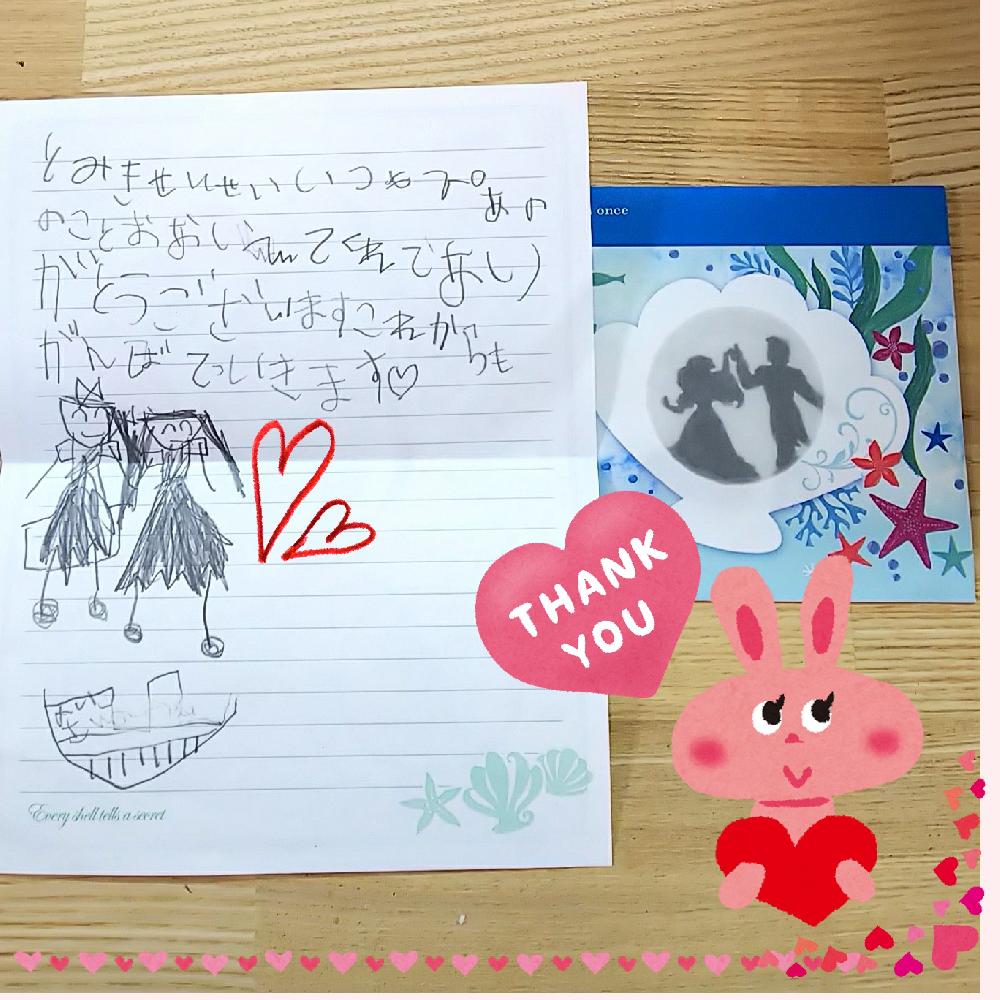 とみきせんせいいつもぴあの
のことおおしえてくれてあり
がとうございますこれからも
がんばてっいきます♡
once
THANK
YOU
Every shell tells a secret